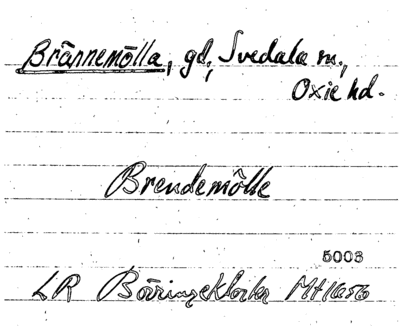 Brännemölla, gd, Svedala sn.,
Oxie hd.
Brendemölle
5003
LR Börringekloster Mt 1656